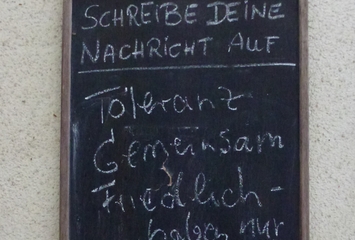 SCHREIBE DEINE
NACHRICHT AUF
Toleranz
Gemeinsam
Friedlich-
haben nur